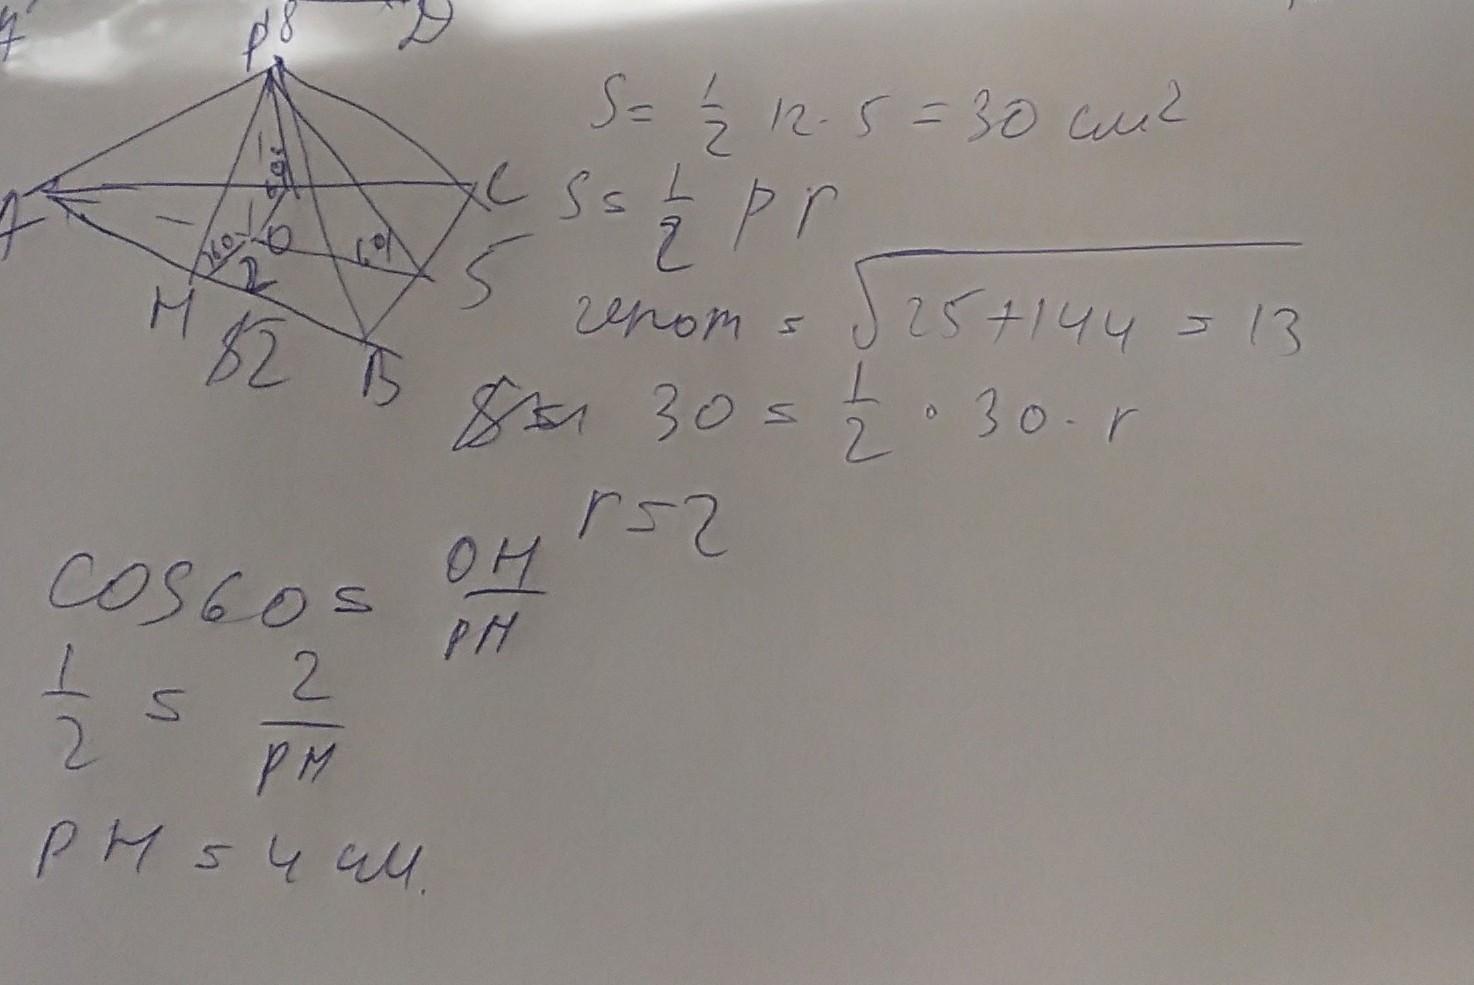 P
A
C
60°
60
O
60
2
M
12
5
B
S = 1/2 12 · 5 = 30 см²
S = 1/2 p r
гипот = √25+144 = 13
30 = 1/2 · 30 · r
r = 2
cos60 = OM/PM
1/2 = 2/PM
PM = 4 см.